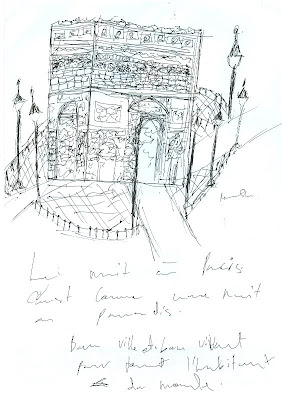 La nuit à Paris
c'est comme une nuit
au paradis.
Bonne ville de bon vivant
pour tout l'habitant
du monde.